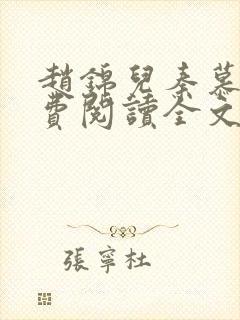 趙錦兒秦慕
費閱讀全文
張寧杜